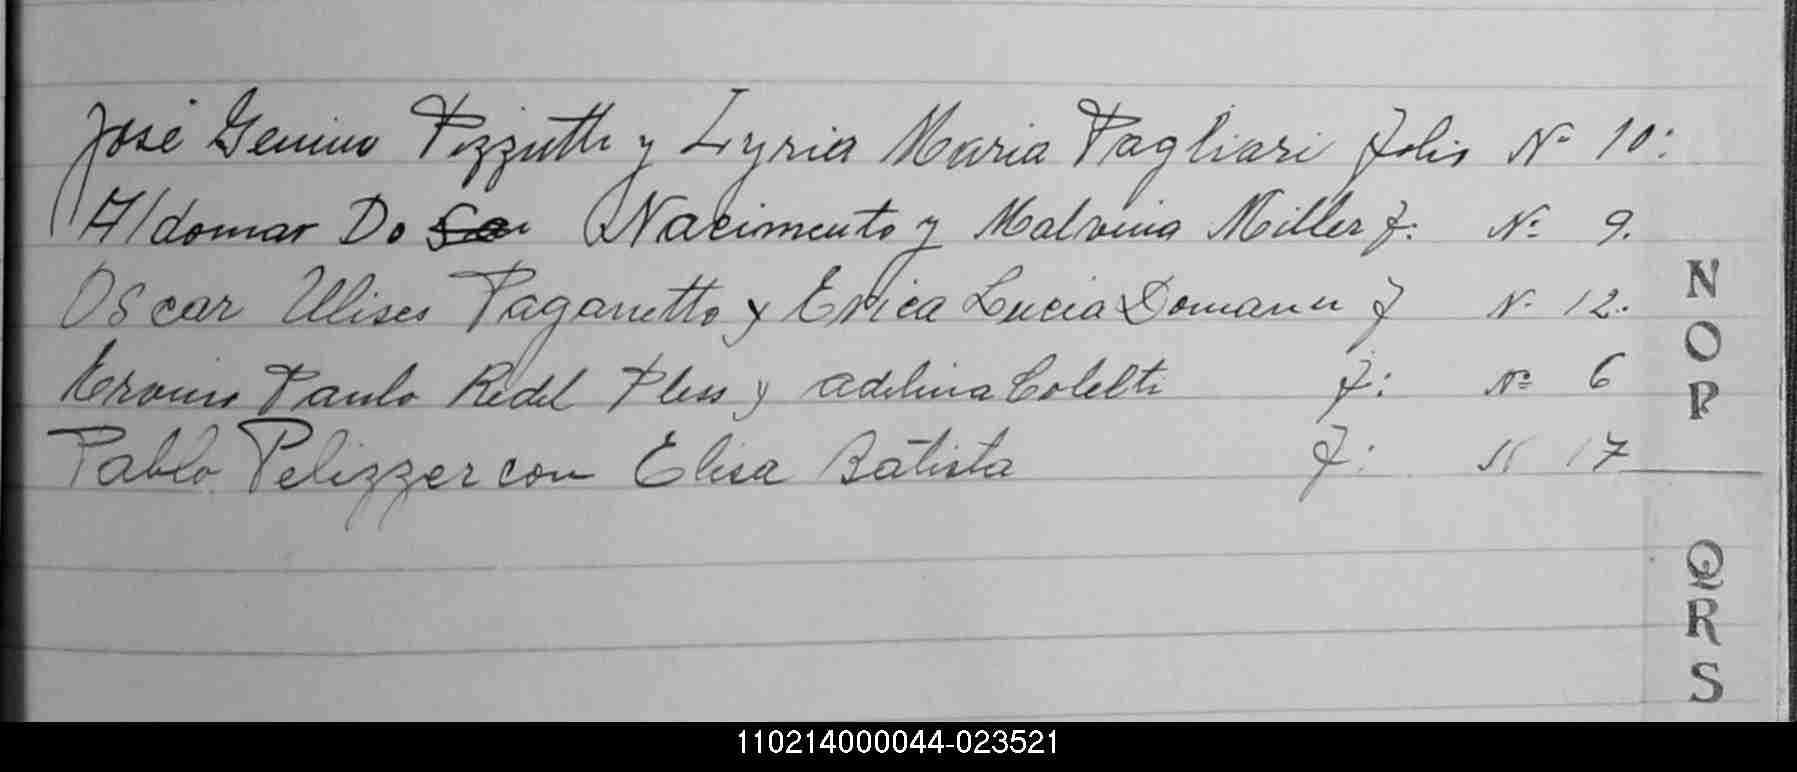 José Genuino Pizzutti y Lyria Maria Pagliari folio Nº 10:
Aldomar Do Nacimento y Malvina Miller f: Nº 9.
Oscar Ulises Paganetto y Erica Lucia Domann f Nº 12.
Ervino Paulo Redel Pless y adelina Coletti f: Nº 6
Pablo Pelizzer con Elisa Batista f: N 17
N
O
P
Q
R
S
110214000044-023521